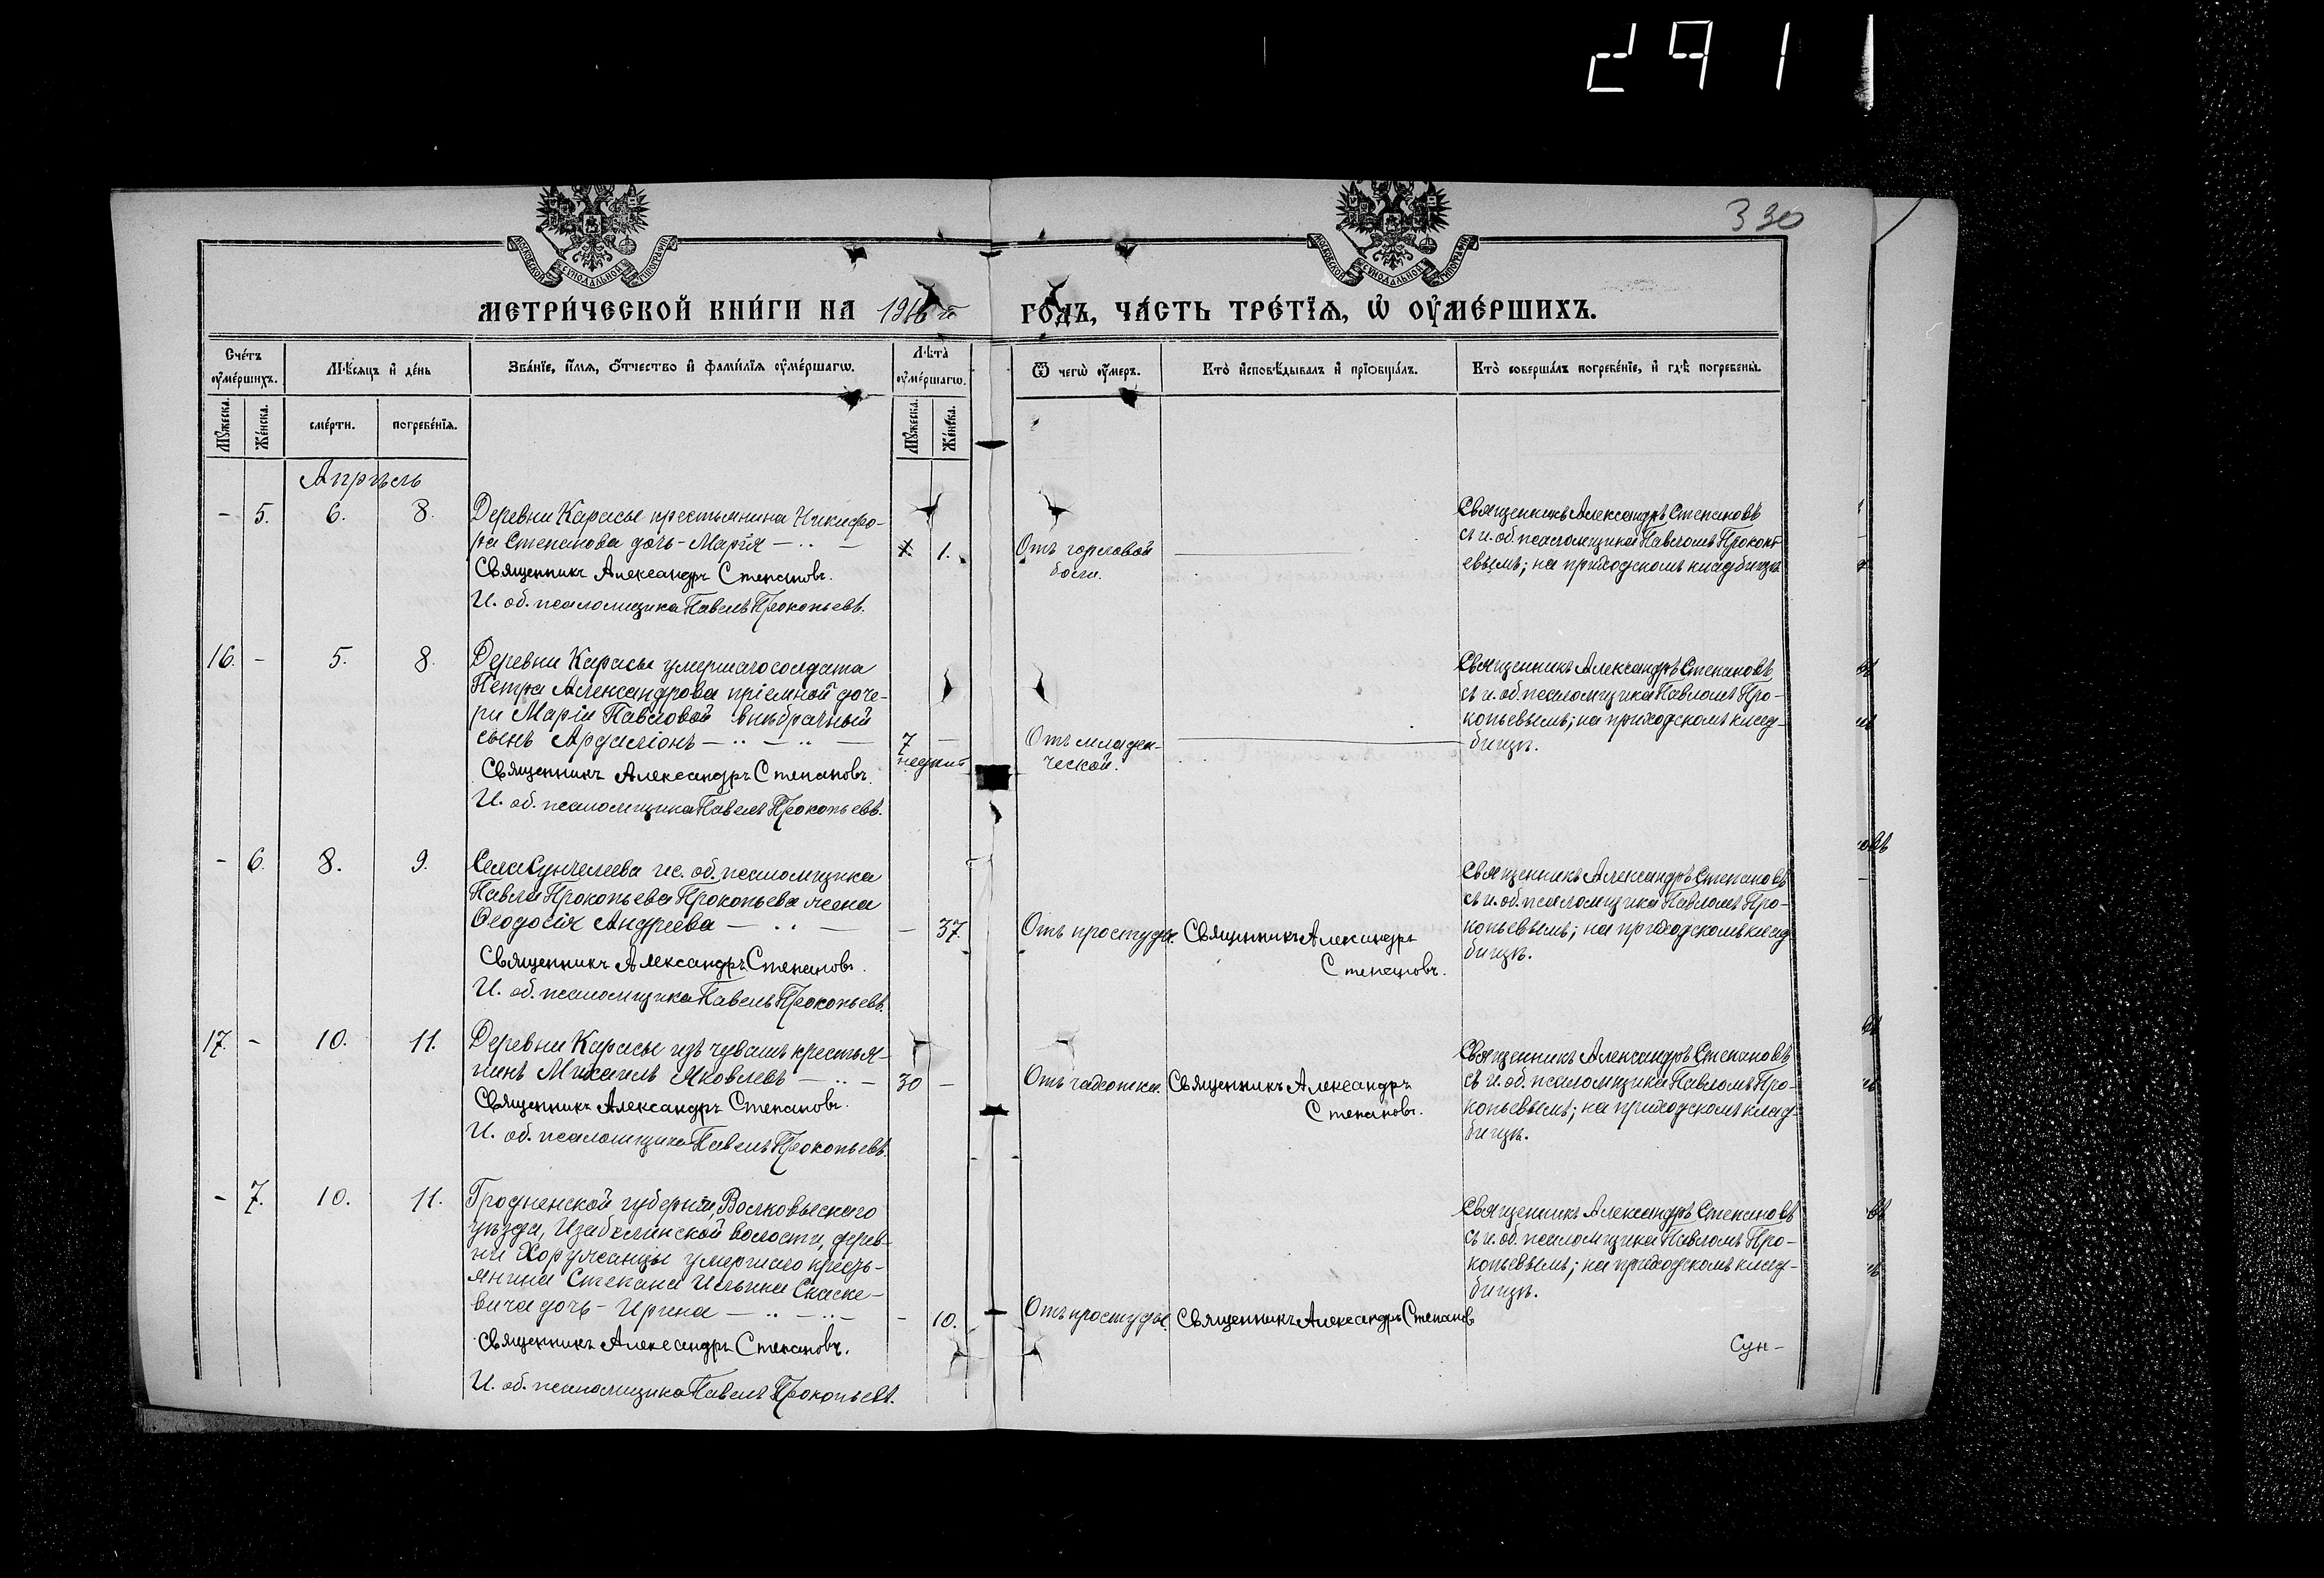 2911
330
МОСКОВСКОЙ СѴНОДАЛЬНОЙ ТИПОГРАФІИ
МОСКОВСКОЙ СѴНОДАЛЬНОЙ ТИПОГРАФІИ
МЕТРИ́ЧЕСКОЙ КНИ́ГИ НА 1916 й ГОДЪ, ЧА́СТЬ ТРЕ́ТЇѦ, Ѡ҆ ОУ҆МЕ́РШИХЪ.
Сче́тъ оу҆ме́ршихъ.
Мѣ́сяцъ и҆ де́нь
Зва́нїе, и҆́мя, ѻ҆́тчество и҆ фами́лїя оу҆ме́ршагѡ.
Лѣ́та оу҆ме́ршагѡ.
Ѿ чегѡ̀ оу҆́меръ.
Кто̀ и҆сповѣ́дывалъ и҆ прїѡбща́лъ.
Кто̀ соверша́лъ погребе́нїе, и҆ гдѣ̀ погребены̀.
Мꙋ́жеска.
Же́нска.
сме́рти.
погребе́нїя.
Мꙋ́жеска.
Же́нска.
Апрѣль
- 5. 6. 8. Деревни Карасы крестьянина Никифо-
ра Степанова дочь - Марія — ·· — 1.
Священникъ Александръ Степановъ.
И. об. псаломщика Павелъ Прокопьевъ.
Отъ горловой
болѣ.
Священникъ Александръ Степановъ
съ и. об. псаломщика Павломъ Прокопь
евымъ; на приходскомъ кладбищѣ
16. - 5. 8. Деревни Карасы умершаго солдата
Петра Александрова пріемной доче-
ри Маріи Павловой внѣбрачный
сынъ Ардаліонъ — ·· — ·· — 7 —
недѣль
Священникъ Александръ Степановъ.
И. об. псаломщика Павелъ Прокопьевъ.
Отъ младен-
ческой.
Священникъ Александръ Степановъ
съ и. об. псаломщика Павломъ Про-
копьевымъ; на приходскомъ клад-
бищѣ.
- 6. 8. 9. Села Сунчелеева ис. об. псаломщика
Павла Прокопьева Прокопьева жена
Ѳеодосія Андреева — ·· — - 37.
Священникъ Александръ Степановъ.
И. об. псаломщика Павелъ Прокопьевъ.
Отъ простуды. Священникъ Александръ
Степановъ.
Священникъ Александръ Степановъ
съ и. об. псаломщика Павломъ Про-
копьевымъ; на приходскомъ клад
бищѣ.
17. - 10. 11. Деревни Карасы изъ чувашъ крестья-
нинъ Михаилъ Яковлевъ — ·· — 30 —
Священникъ Александръ Степановъ.
И. об. псаломщика Павелъ Прокопьевъ.
Отъ чахотки. Священникъ Александръ
Степановъ.
Священникъ Александръ Степановъ
съ и. об. псаломщика Павломъ Про-
копьевымъ; на приходскомъ клад-
бищѣ.
- 7. 10. 11. Гродненской губерніи, Волковыскаго
уѣзда, Изабелинской волости, дерев-
ни Хоружанцы умершаго кресть-
янина Степана Ильина Скаске-
вича дочь - Ирина — ·· — ·· — - 10.
Священникъ Александръ Степановъ.
И. об. псаломщика Павелъ Прокопьевъ.
Отъ простуды. Священникъ Александръ Степановъ
Священникъ Александръ Степановъ
съ и. об. псаломщика Павломъ Про-
копьевымъ; на приходскомъ клад-
бищѣ.
Сун-